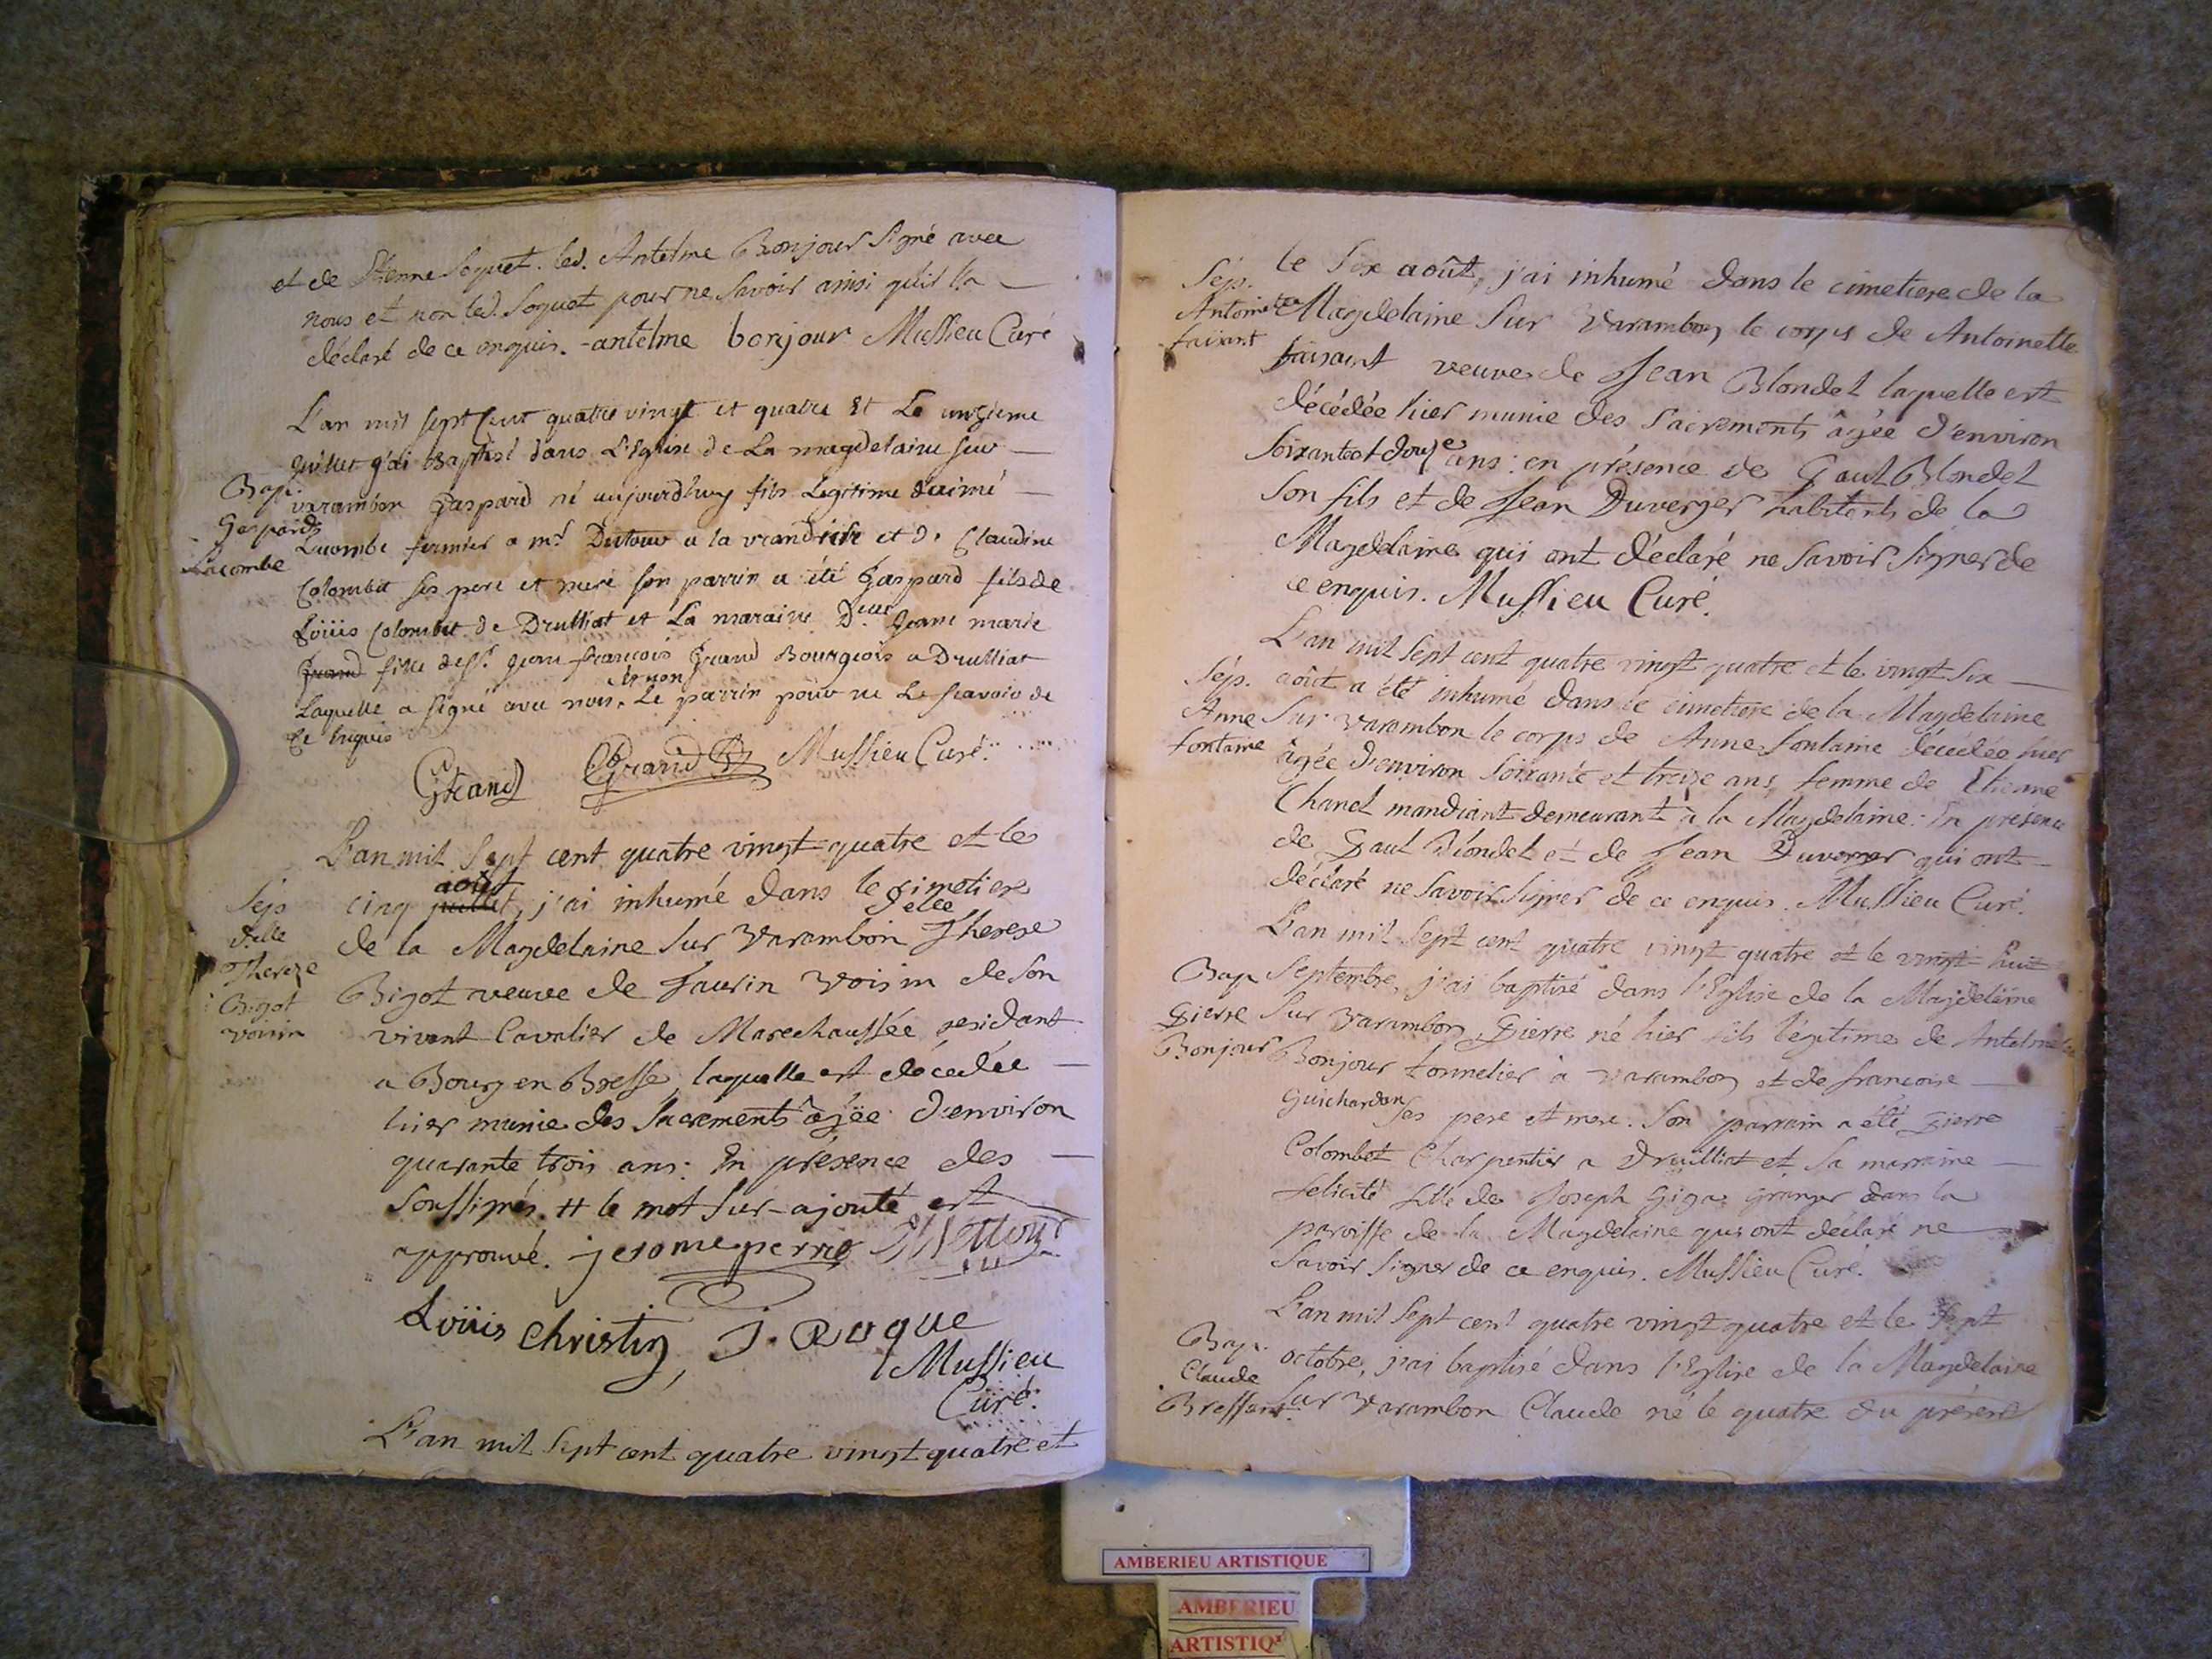 et de Etienne Soquet. led. Antelme Bonjour signé avec
nous et non led. Soquet pour ne savoir ainsi qu'il l'a
déclaré de ce enquis. - antelme bonjour Mussieu Curé
L'an mil sept cent quatre vingt et quatre Et Le unzieme
Juillet j'ai Baptisé dans L'Eglise de La magdelaine sur
Bap.
Gaspard
Lacombe
varambon Gaspard né aujourdhuy fils Legitime d'aimé
Lacombe fermier a mr. Dutour a la et de Claudine
Colombet ses pere et mere son parrin a été Gaspard fils de
Loüis Colombet de Drulliat et La maraine Delle Jeanne marie
Grand fille de Sr. Jean françois Grand Bourgeois a Drulliat
Laquelle a signé avec nous, Et non Le parrin pour ne Le scavoir de
Ce Enquis
Grand Grand Mussieu Curé.
L'an mil sept cent quatre vingt quatre et le
Sép
delle
Thereze
Bigot
voisin
cinq juillet août, j'ai inhumé dans le cimetiere
de la Magdelaine sur Varambon delle Therese
Bigot veuve de Faurin Voisin de son
vivant Cavalier de Marechaussée residant
a Bourg en Bresse, laquelle est décedée
hier munie des Sacrements âgée d'environ
quarante trois ans: En présence des
soussignés. # le mot sur-ajouté est
approuvé. jerome perrier
Loüis christin, J. Roque
Mussieu
Curé.
L'an mil sept cent quatre vingt quatre et
Sép.
Antoinette
faisant
le six août, j'ai inhumé dans le cimetiere de la
Magdelaine sur Varambon le corps de Antoinette
faisant veuve de Jean Blondet laquelle est
décédée hier munie des Sacrements âgée d'environ
soixante et douze ans: en présence de Paul Blondet
son fils et de Jean Duverger habitants de la
Magdelaine qui ont déclaré ne savoir signer de
ce enquis. Mussieu Curé.
L'an mil sept cent quatre vingt quatre et le vingt six
Sép.
Anne
fontaine
août a été inhumé dans le cimetiere de la Magdelaine
sur varambon le corps de Anne fontaine décédée hier
âgée d'environ soixante et treize ans femme de Etienne
Chanel mandiant demeurant à la Magdelaine: En présence
de Paul Blondet et de Jean Duverger qui ont
déclaré ne savoir signer de ce enquis. Mussieu Curé.
L'an mil sept cent quatre vingt quatre et le vingt huit
Bap
Pierre
Bonjour
septembre, j'ai baptisé dans l'Eglise de la Magdelaine
sur Varambon Pierre né hier fils légitime de Antelme
Bonjour tonnelier à varambon et de francoise
Guichardan ses pere et mere. Son parrain a été Pierre
Colombet Charpentier a Druilliat et sa marraine
felicité fille de Joseph Granger dans la
paroisse de la Magdelaine qui ont déclaré ne
savoir signer de ce enquis. Mussieu Curé.
L'an mil sept cent quatre vingt quatre et le sept
Bap.
Claude
Bressand
octobre, j'ai baptisé dans l'Eglise de la Magdelaine
sur Varambon Claude né le quatre du présent
AMBERIEU ARTISTIQUE
AMBERIEU
ARTISTIQ